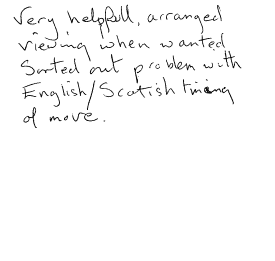 Very helpfull, arranged
viewing when wanted
Sorted out problem with
English/Scotish timing
of move.